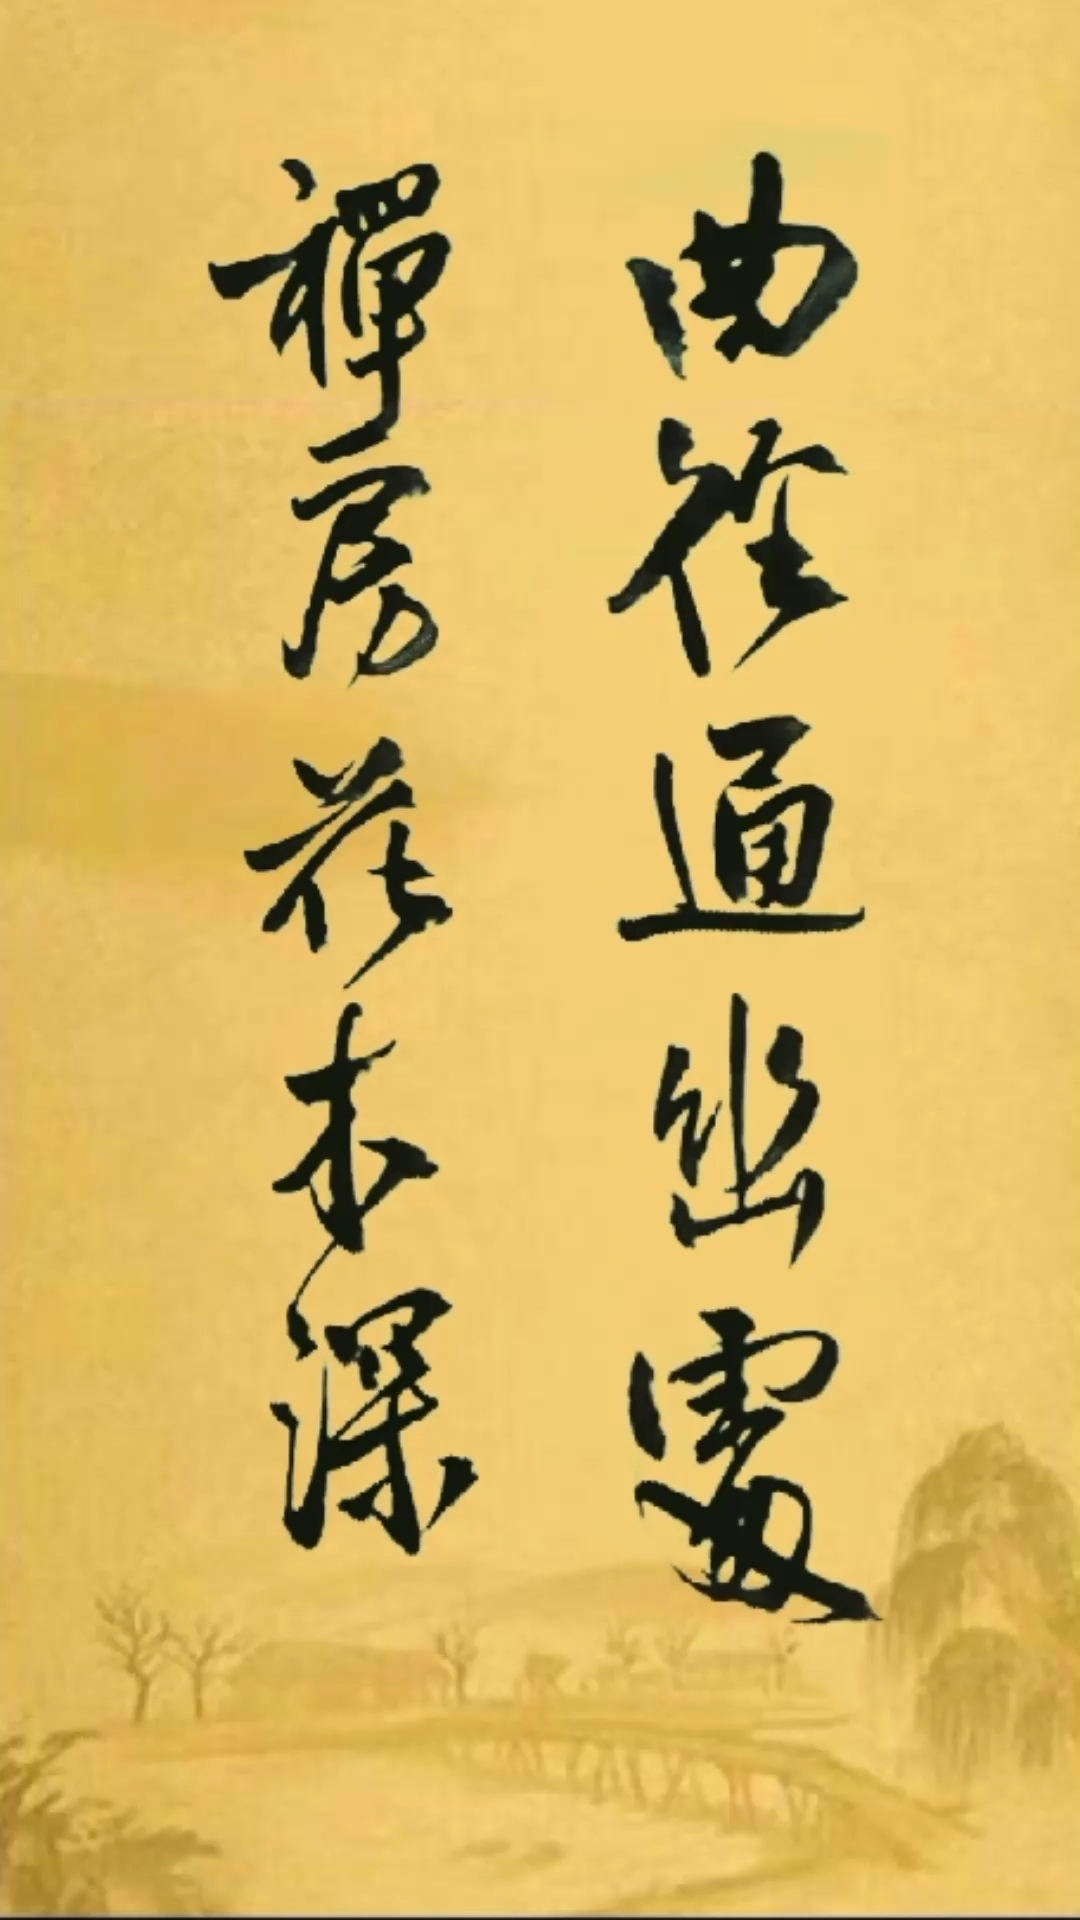 曲径通幽處
禪房花木深